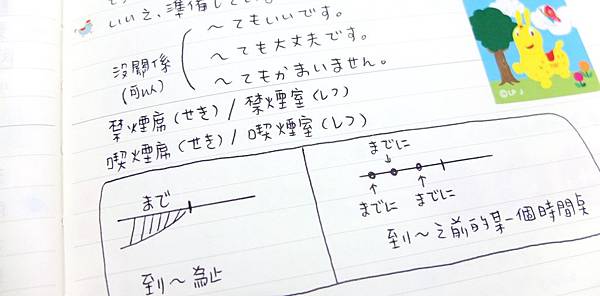 いいえ、準備してい
没關係
(可以)
～てもいいです。
～ても大丈夫です。
～てもかまいません。
禁煙席(せき)/禁煙室(しつ)
喫煙席(せき)/喫煙室(しつ)
まで
到～為止
までに
までに までに
到～之前的某一個時間点